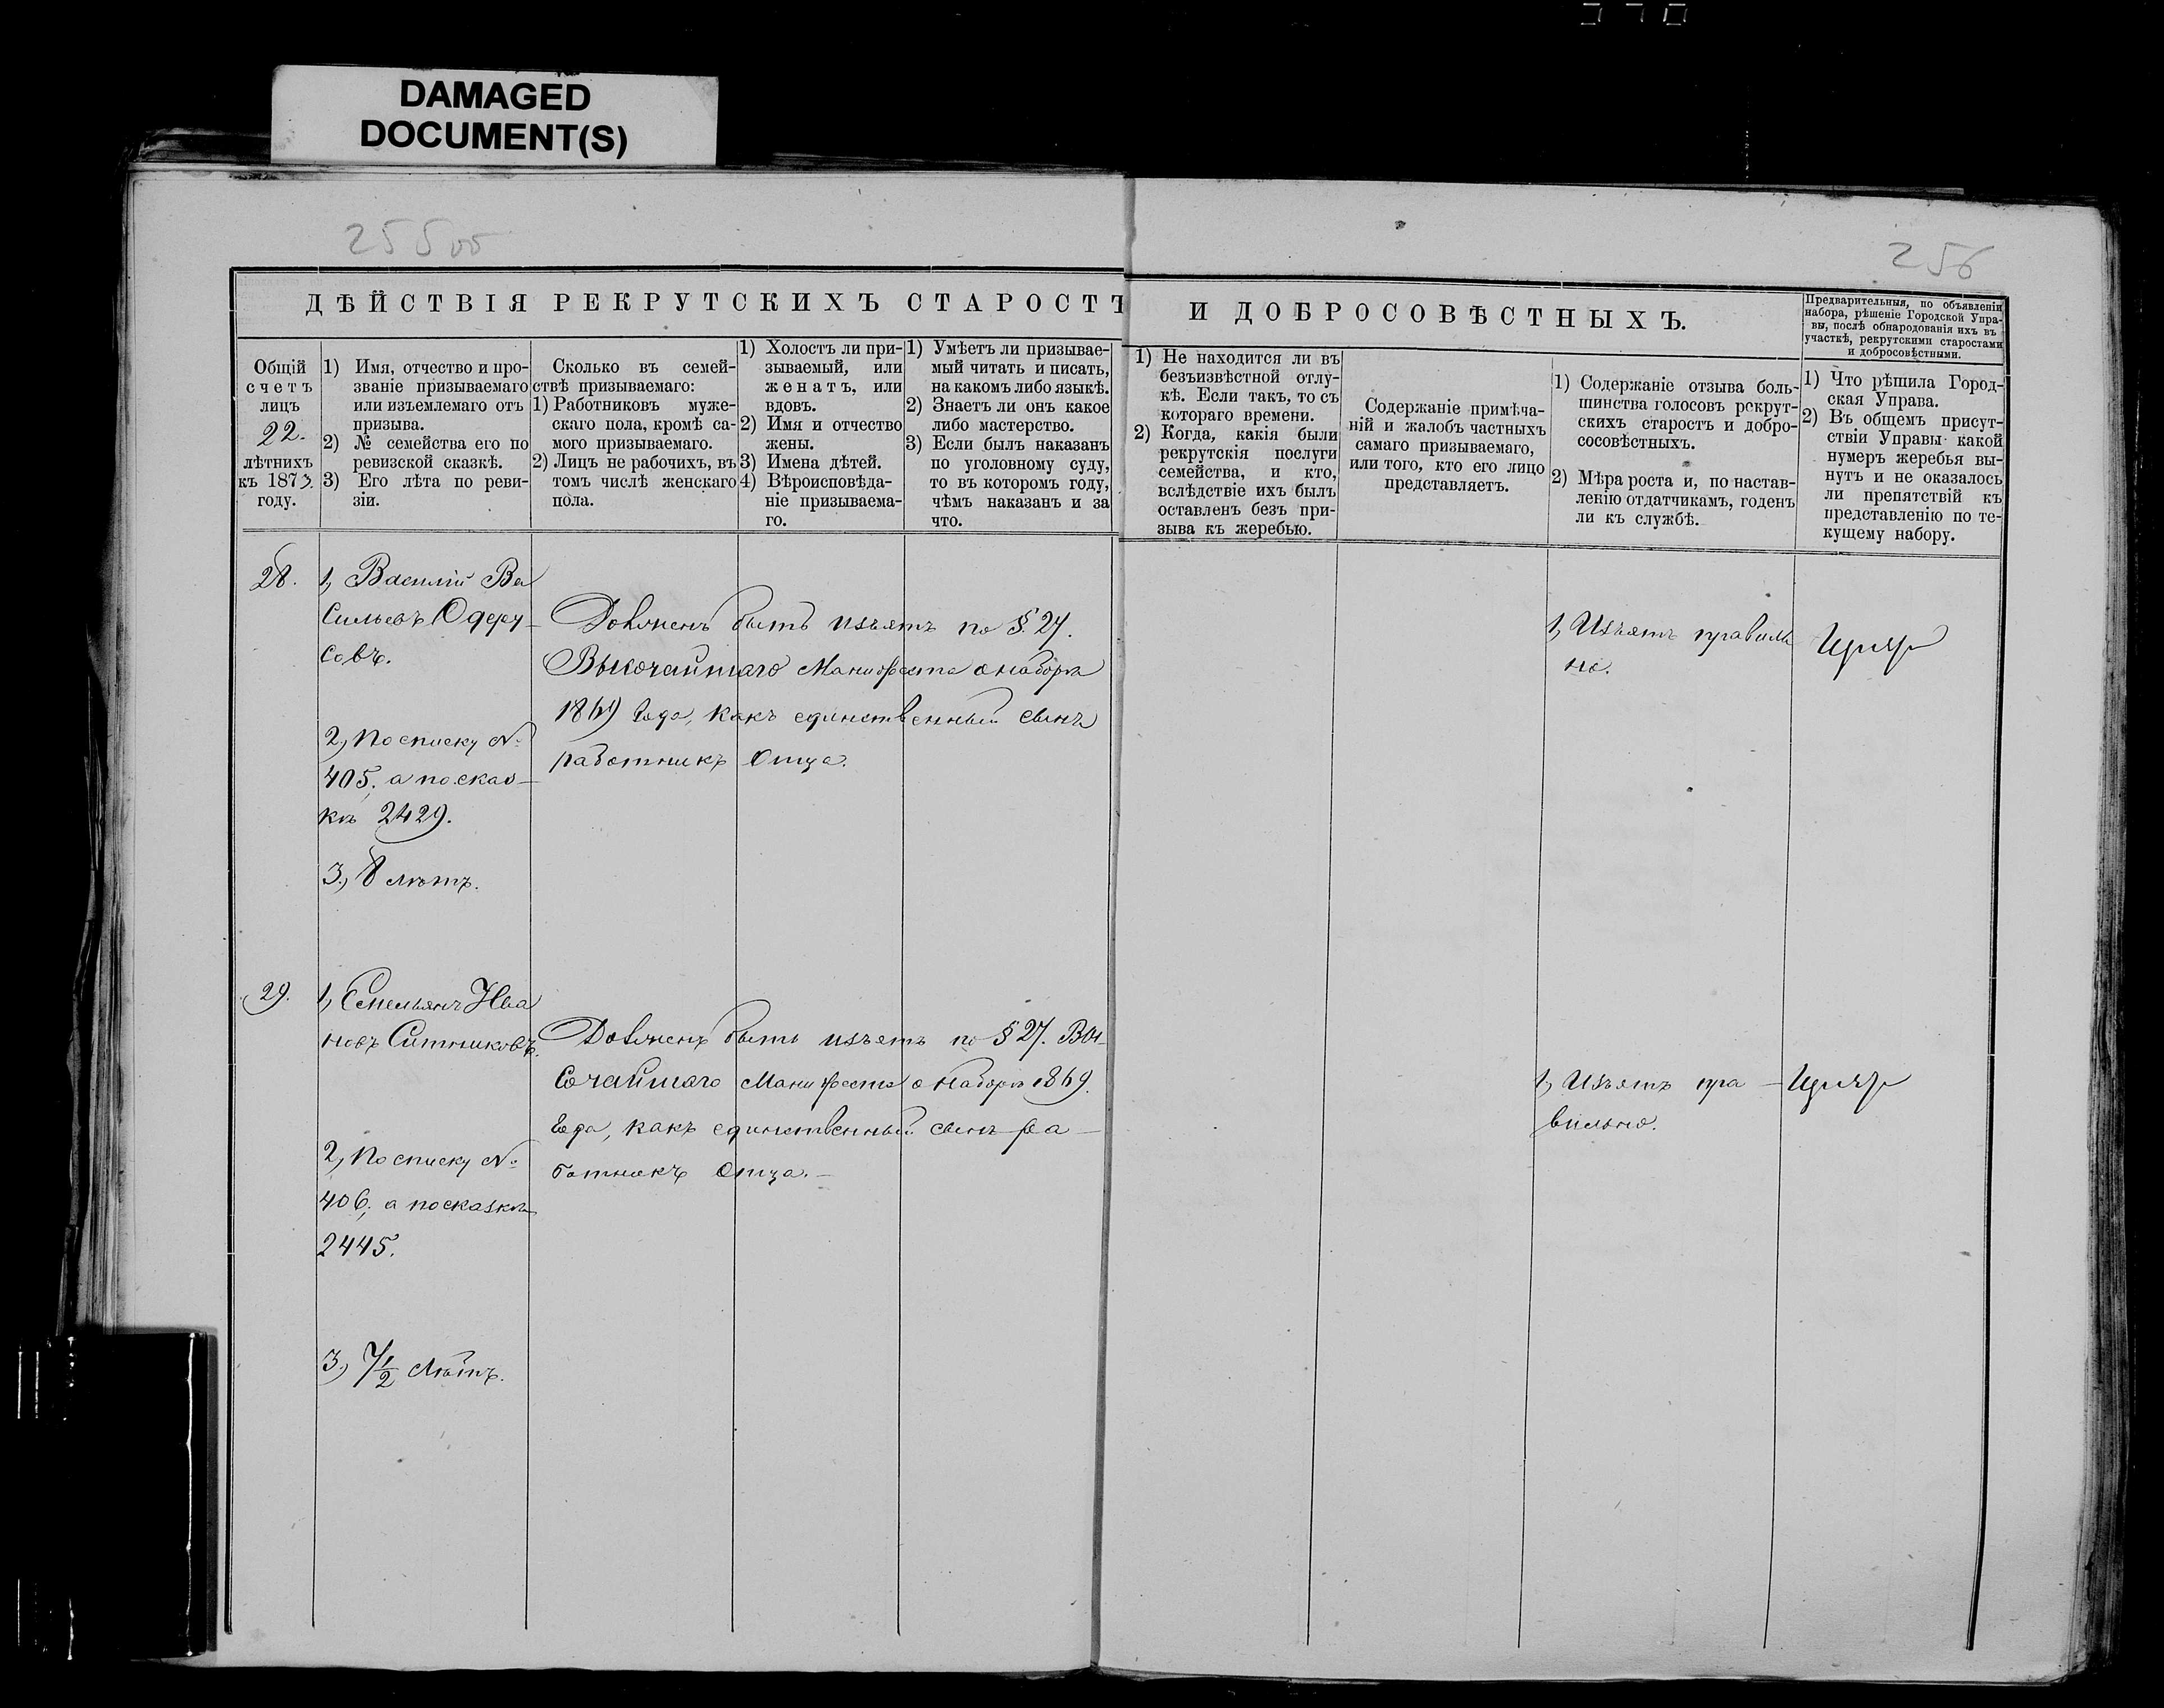 DAMAGED
DOCUMENT(S)
255об
256
ДѢЙСТВІЯ РЕКРУТСКИХЪ СТАРОСТЪ И ДОБРОСОВѢСТНЫХЪ.
Предварительныя, по объявленіи
набора, рѣшеніе Городской Упра-
вы, послѣ обнародованія ихъ въ
участкѣ, рекрутскими старостами
и добросовѣстными.
Общій
счетъ
лицъ
22.
лѣтнихъ
къ 1873.
году.
1) Имя, отчество и про-
званіе призываемаго
или изъемлемаго отъ
призыва.
2) № семейства его по
ревизской сказкѣ.
3) Его лѣта по реви-
зіи.
Сколько въ семей-
ствѣ призываемаго:
1) Работниковъ муже-
скаго пола, кромѣ са-
мого призываемаго.
2) Лицъ не рабочихъ, въ
томъ числѣ женскаго
пола.
1) Холостъ ли при-
зываемый, или
женатъ, или
вдовъ.
2) Имя и отчество
жены.
3) Имена дѣтей.
4) Вѣроисповѣда-
ніе призываема-
го.
1) Умѣетъ ли призывае-
мый читать и писать,
на какомъ либо языкѣ.
2) Знаетъ ли онъ какое
либо мастерство.
3) Если былъ наказанъ
по уголовному суду,
то въ которомъ году,
чѣмъ наказанъ и за
что.
1) Не находится ли въ
безъизвѣстной отлу-
кѣ. Если такъ, то съ
котораго времени.
2) Когда, какія были
рекрутскія послуги
семейства, и кто,
вслѣдствіе ихъ былъ
оставленъ безъ при-
зыва къ жеребью.
Содержаніе примѣча-
ній и жалобъ частныхъ
самаго призываемаго,
или того, кто его лицо
представляетъ.
1) Содержаніе отзыва боль-
шинства голосовъ рекрут-
скихъ старостъ и добро-
совѣстныхъ.
2) Мѣра роста и, по настав-
ленію отдатчикамъ, годенъ
ли къ службѣ.
1) Что рѣшила Город-
ская Управа.
2) Въ общемъ присут-
ствіи Управы какой
нумеръ жеребья вы-
нутъ и не оказалось
ли препятствій къ
представленію по те-
кущему набору.
28.
1, Василій Ва
сильевъ Одеру-
совъ.
2, По списку №
405, а по сказ-
кѣ 2429.
3, 8 лѣтъ.
Долженъ быть изъятъ по §. 27.
Высочайшаго Манифеста о наборѣ
1869 года, какъ единственный сынъ
работникъ отца.
1, Изъятъ правиль
но.
29.
1, Емельянъ Ива
новъ Ситниковъ.
2, По списку №
406, а по сказкѣ
2445.
3, 7 1/2 лѣтъ.
Долженъ быть изъятъ по § 27. Вы-
сочайшаго Манифеста о наборѣ 1869.
года, какъ единственный сынъ ра-
ботникъ отца.-
1, Изъятъ пра-
вильно.